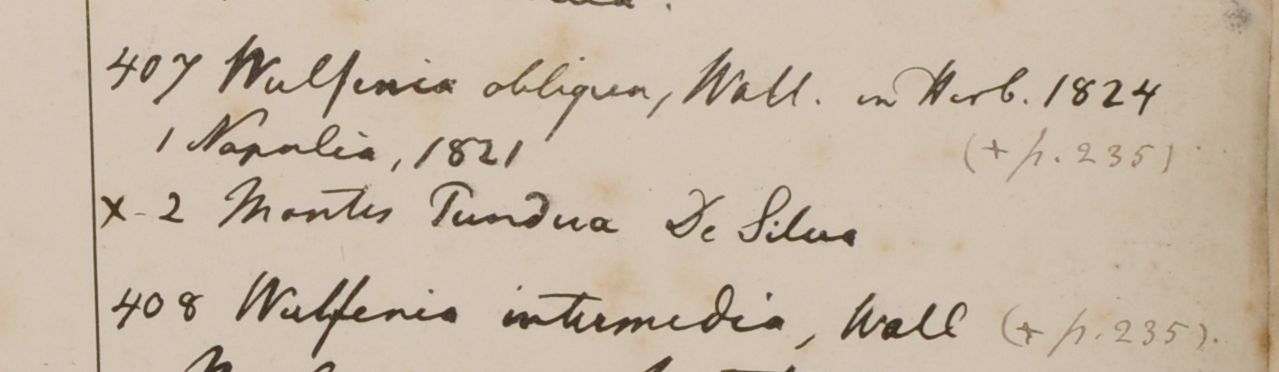 407 Wulfenia obliqua, Wall. in Herb. 1824
1 Napalia, 1821 (+ p. 235)
x 2 Montis Tundua De Silva
408 Wulfenia intermedia, Wall (+ p. 235).